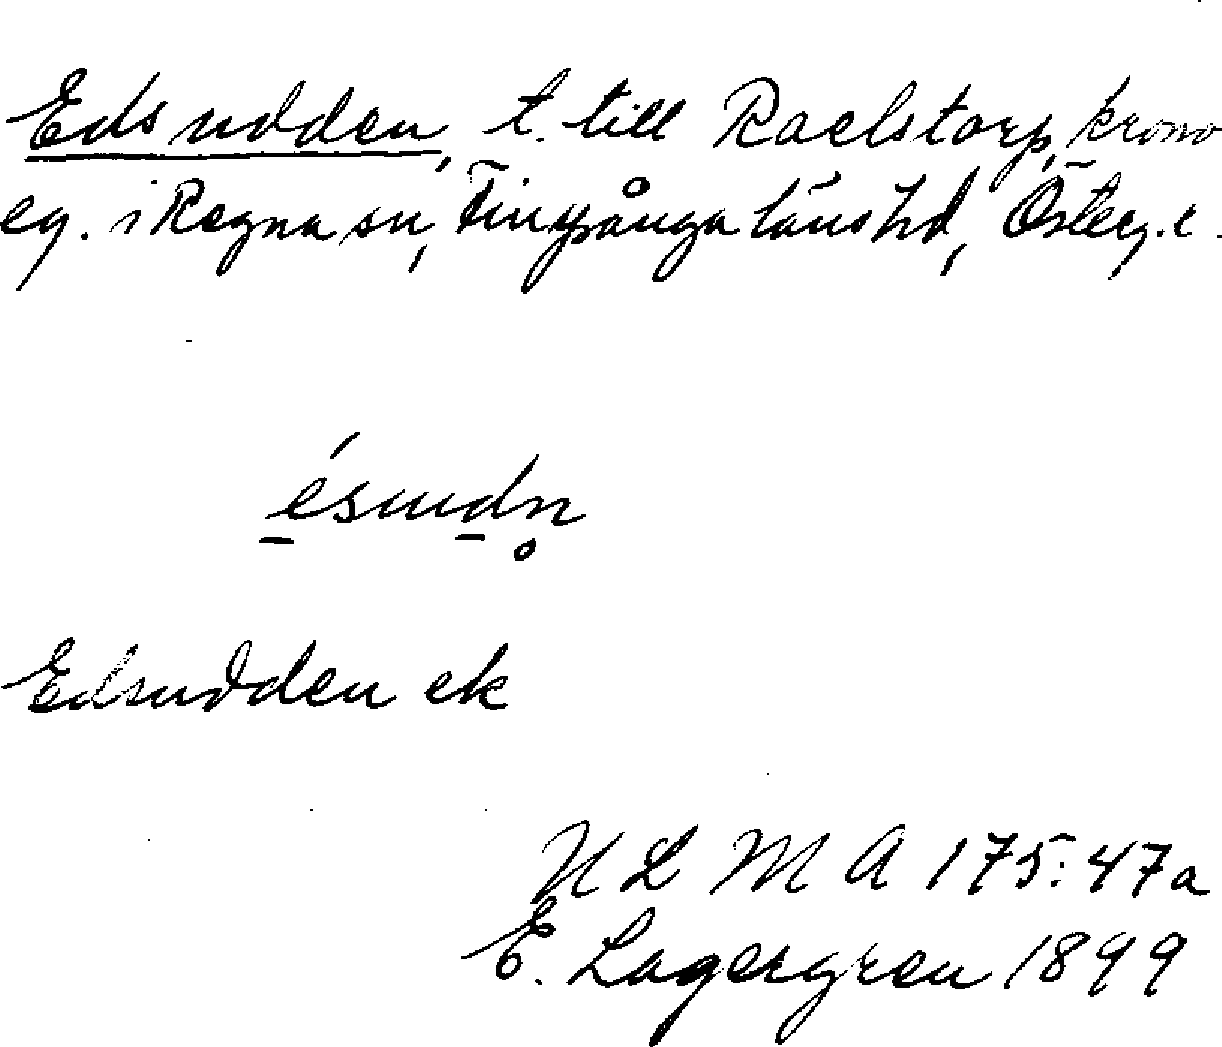 Edsudden, t. till Raelstorp, krono
eg. i Regna sn, Finspånga läns hd, Österg. l.
ésudn̥
Edsudden ek
ULMA 175:47a
E. Lagergren 1899